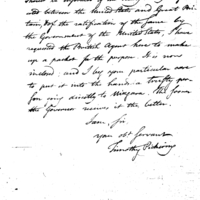 and between the United States and Great Bri-
tain, & of the ratification of the same by
the Government of the United States, I have
requested the British Agent here to make
up a packet for the purpose. It is now
inclosed: and I beg your particular care
to put it into the hands of a trusty per-
son going directly to Niagara. The sooner
the Governor receives it the better.
I am, Sir,
your obt. Servant
Timothy Pickering